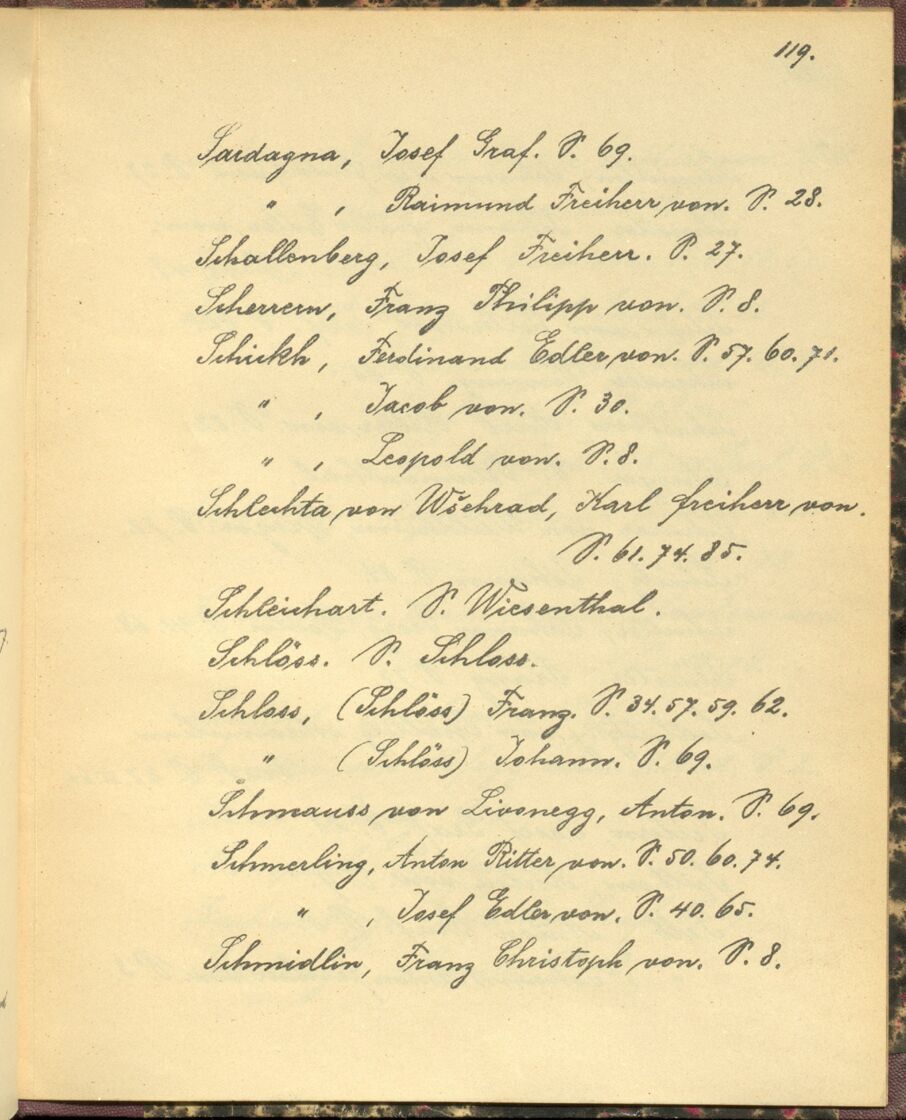 119.
Sardagna, Josef Graf. S. 69.
" , Raimund Freiherr von. S. 28.
Schallenberg, Josef Freiherr. S. 27.
Scherrern, Franz Philipp von. S. 8.
Schickh, Ferdinand Edler von. S. 57. 60. 71.
" , Jacob von. S. 30.
" , Leopold von. S. 8.
Schlechta von Wšehrad, Karl freiherr von.
S. 61. 74. 85.
Schleichart. S. Wiesenthal.
Schlöss. S. Schloss.
Schloss, (Schlöss) Franz. S. 34. 57. 59. 62.
" (Schlöss) Johann. S. 69.
Schmauss von Livonegg, Anton. S. 69.
Schmerling, Anton Ritter von. S. 50. 60. 74.
" , Josef Edler von. S. 40. 65.
Schmidlin, Franz Christoph von. S. 8.